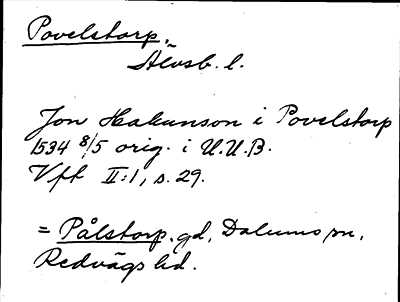 Povelstorp.
Älvsb. l.
Jon Hakunson i Povelstorp
1534 8/5 orig. i U.U.B.
Vff II:1, s. 29.
= Pålstorp. gd, Dalums sn,
Redvägs hd.